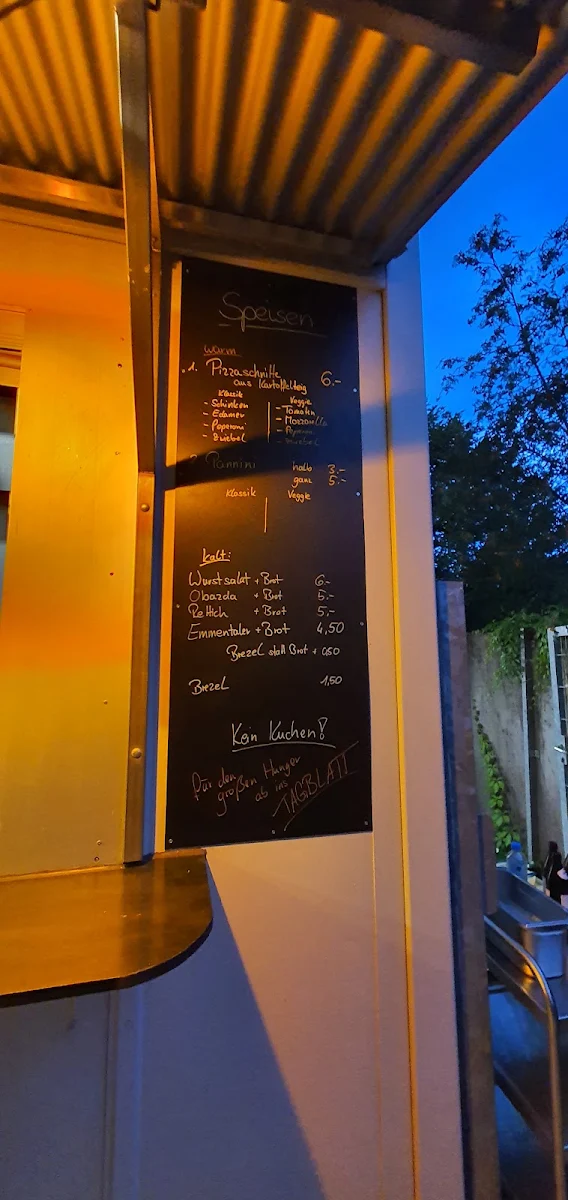 Speisen
warm
1. Pizzaschnitte 6.-
aus Kartoffelteig
Klassik Veggie
- Schinken - Tomaten
- Edamer - Mozzarella
- Peperoni - Peperoni
- Zwiebel - Zwiebel
2. Pannini halb 3.-
ganz 5.-
Klassik Veggie
kalt:
Wurstsalat + Brot 6.-
Obazda + Brot 5.-
Rettich + Brot 5,-
Emmentaler + Brot 4,50
Brezel statt Brot + 0,50
Brezel 1,50
Kein Kuchen!
Für den
großen Hunger
ab ins
TAGBLATT